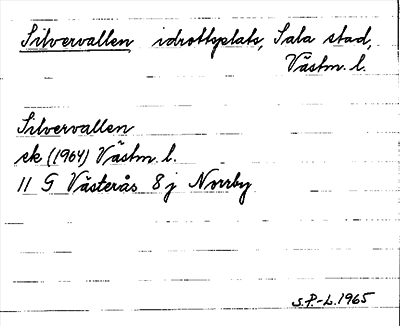 Silvervallen idrottsplats, Sala stad,
Västm. l.
Silvervallen
ek (1964) Västm. l.
11 G Västerås 8 j Norrby
S.P-L. 1965